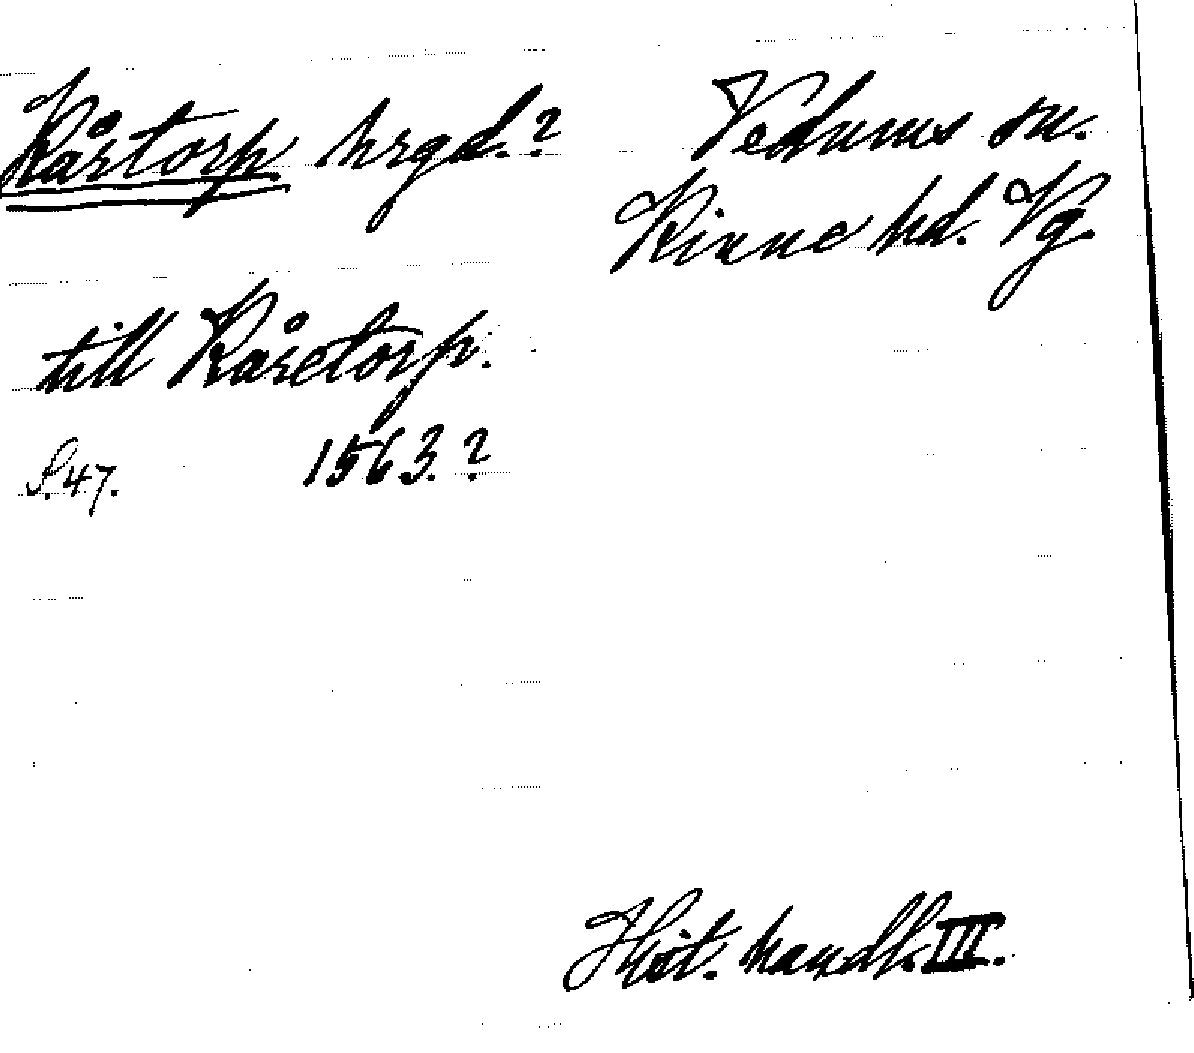 Kårtorp hrgd.? Vedums sn.
Kinne hd. Vg.
till Kåretorp.
S. 47. 1563.?
Hist. handl. III.